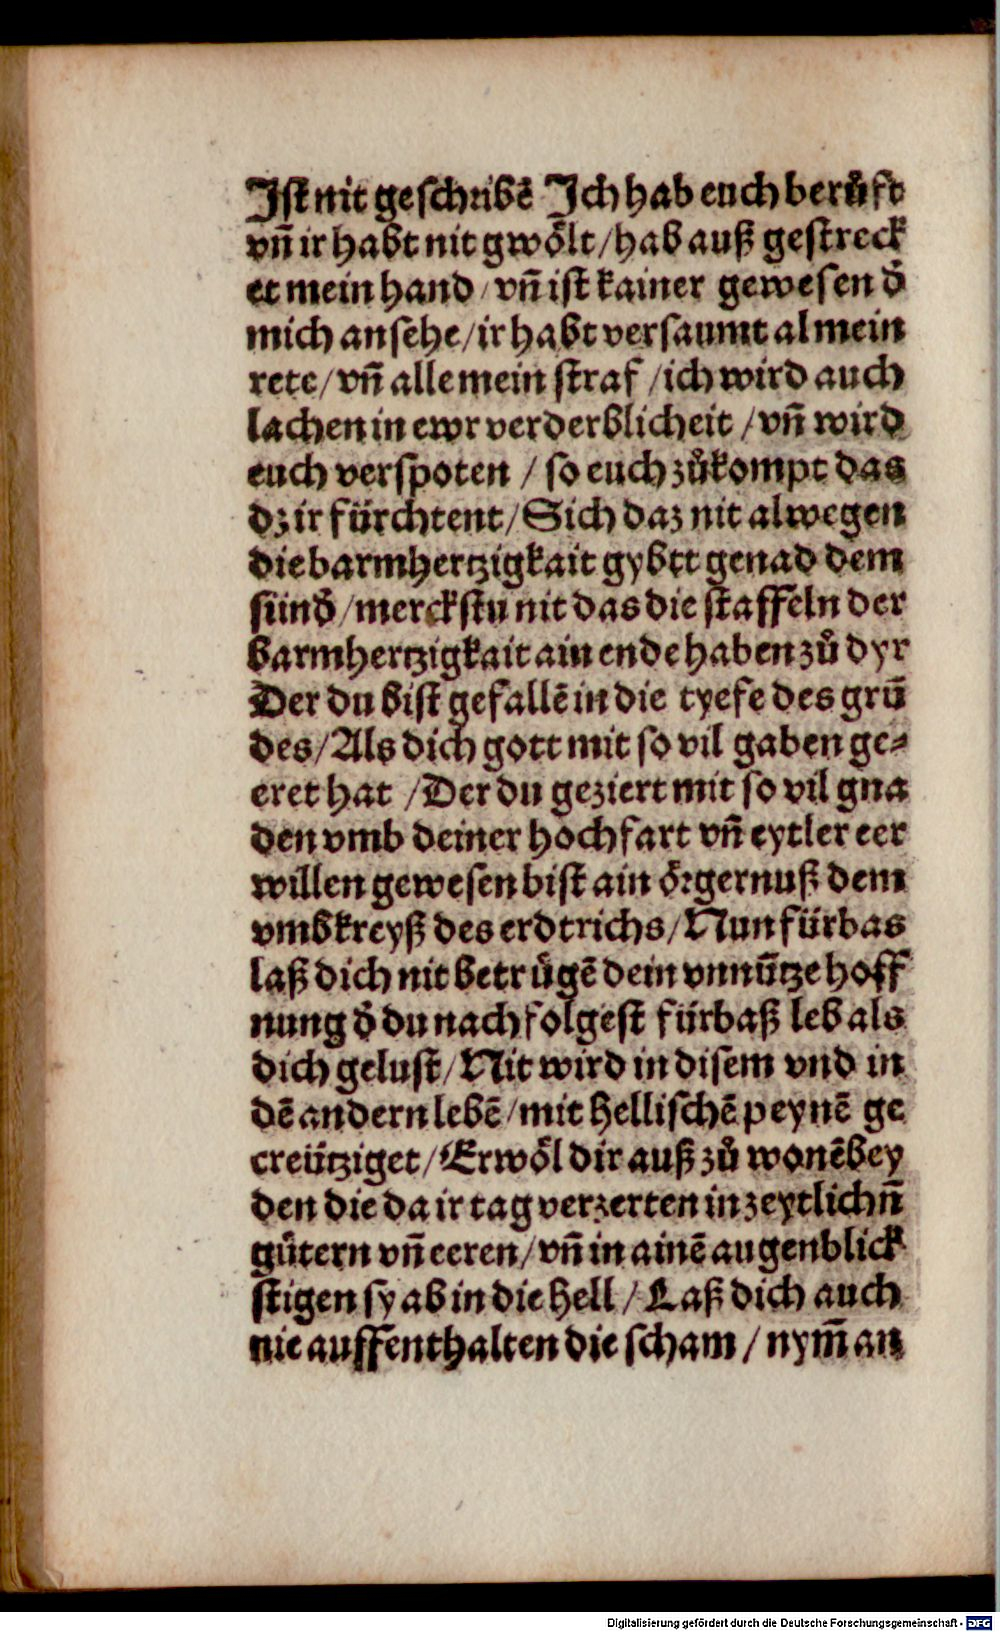 Ist nit geschribē Ich hab euch berůft
vn̄ ir habt nit gwölt/hab auß gestreck
et mein hand/vn̄ ist kainer gewesen d̄
mich ansehe/ir habt versaumt al mein
rete/vn̄ alle mein straf/ich wird auch
lachen in ewr verderblicheit/vn̄ wird
euch verspoten/so euch zůkompt das
dz ir fürchtent/Sich daz nit alwegen
die barmhertzigkait gybtt genad dem
sünd̄/merckstu nit das die staffeln der
barmhertzigkait ain ende haben zů dyr
Der du bist gefallē in die tyefe des grū
des/Als dich gott mit so vil gaben ge⸗
eret hat/Der du geziert mit so vil gna
den vmb deiner hochfart vn̄ eytler eer
willen gewesen bist ain örgernuß dem
vmbkreyß des erdtrichs/Nun fürbas
laß dich nit betrügē dein vnnütze hoff
nung d̄ du nachfolgest fürbaß leb als
dich gelust/Nit wird in disem vnd in
dē andern lebē/mit hellischē peynē ge
creütziget/Erwöl dir auß zů wonē bey
den die da ir tag verzerten in zeytlichn̄
gütern vn̄ eeren/vn̄ in ainē augenblick
stigen sy ab in die hell/Laß dich auch
nie auffenthalten die scham/nym̄ an
Digitalisierung gefördert durch die Deutsche Forschungsgemeinschaft - DFG